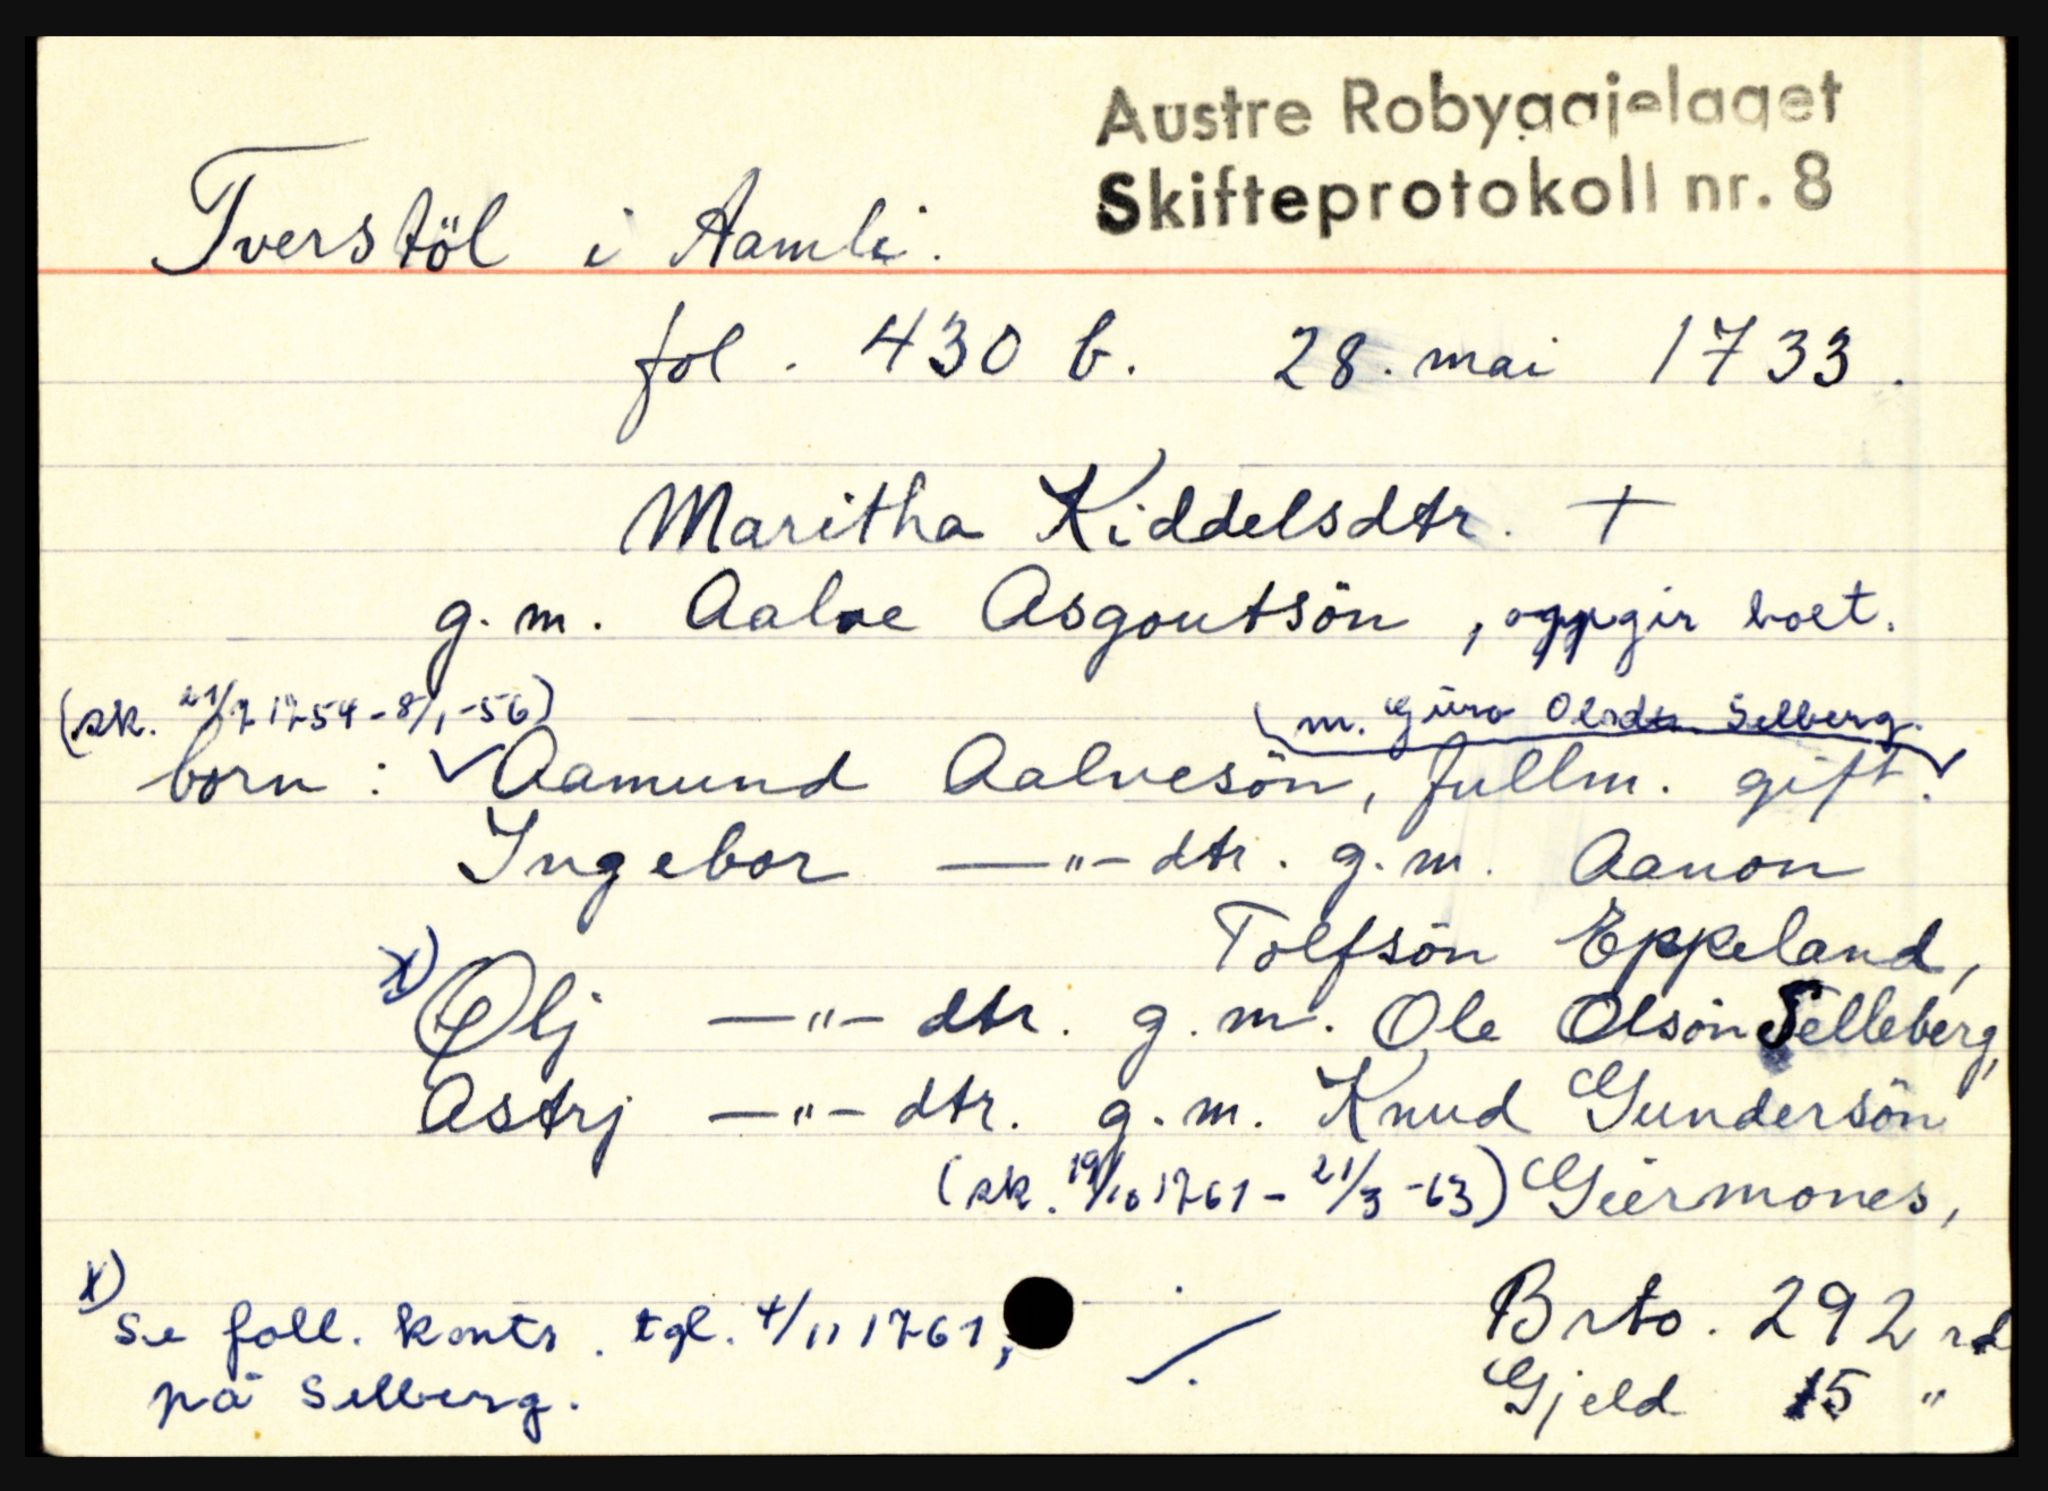 Austre Robyggjelaget
Skifteprotokoll nr. 8
Tverstöl i Aamli.
fol. 430 b. 28. mai 1733.
Maritha Kiddelsdtr. +
g. m. Aalve Asgoutsön, oppgir boet.
(sk. 21/7 1754 - 8/1 -56)
(m. Guro Olsdtr. Selberg.
born : ✓ Aamund Aalvesön, fullm. gift. ✓
Ingebor —"— dtr. g. m. Aanon
Tolfsön Eppeland,
x) Ølj —"— dtr. g. m. Ole Olsön Selleberg,
Astrj —"— dtr. g. m. Knud Gundersön
(sk. 19/10 1761 - 21/3 -63) Giermones,
x) Se foll. konts. tgl. 4/11 1761,
på Selberg.
Brto. 292 rd
Gjeld 15 "